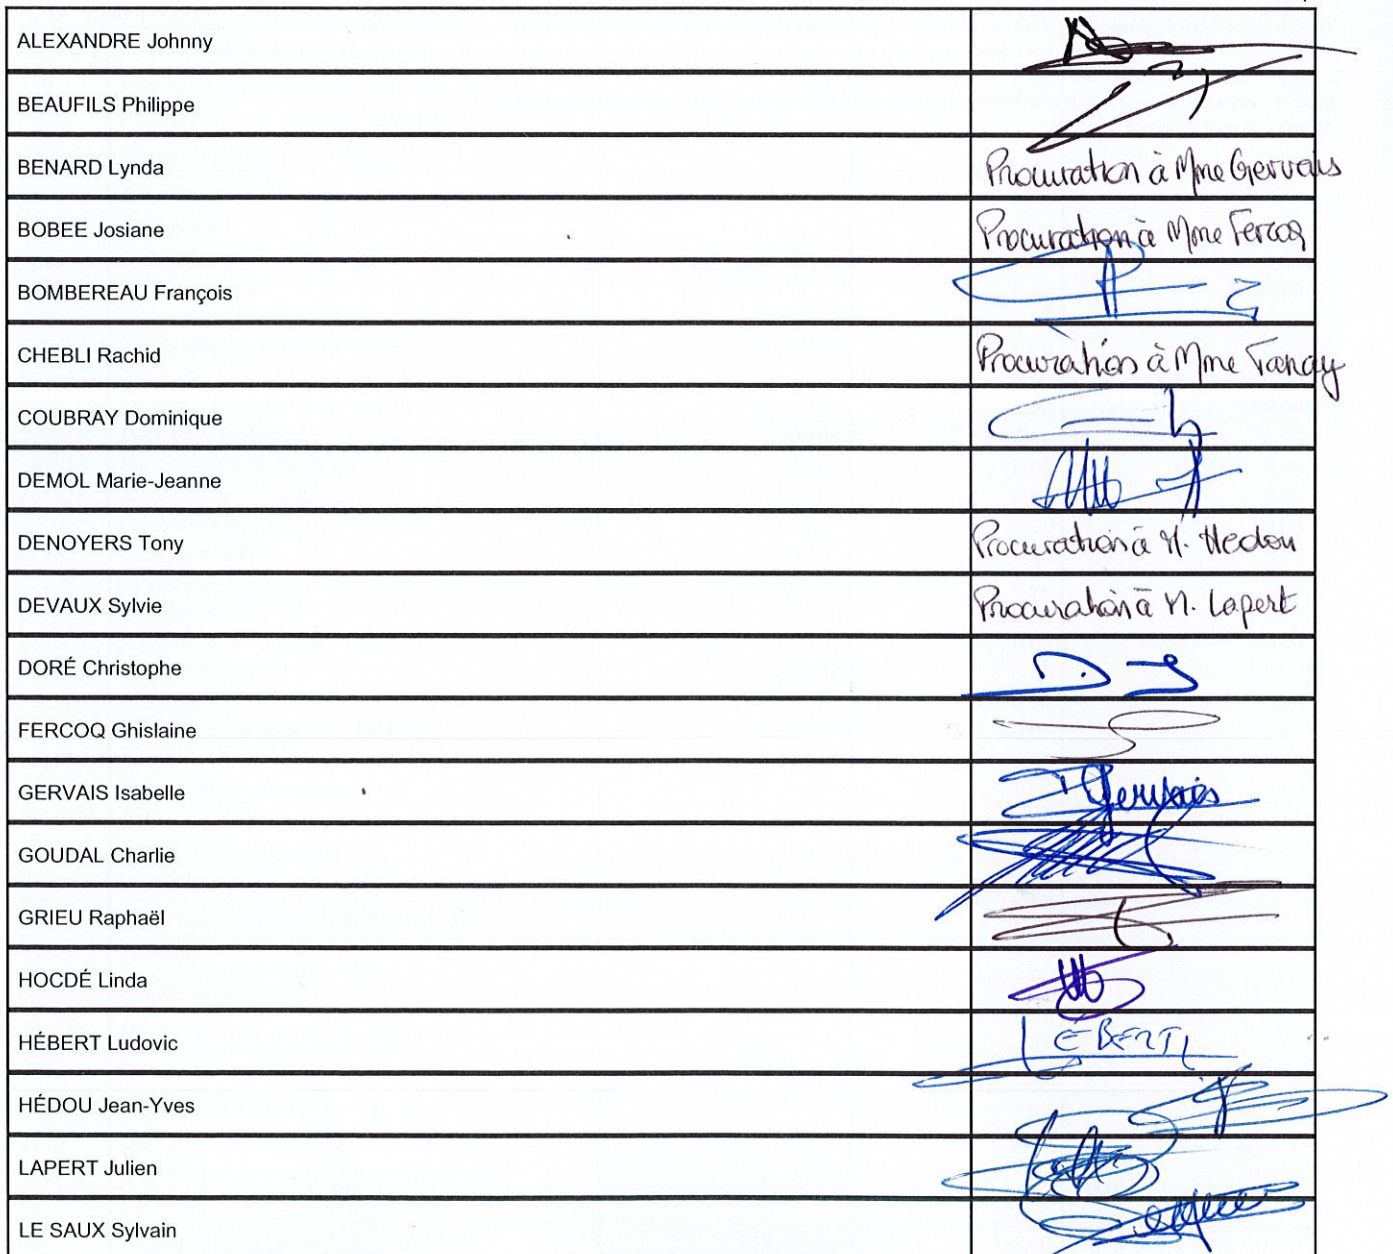 ALEXANDRE Johnny
BEAUFILS Philippe
BENARD Lynda
Procuration à Mme Gervais
BOBEE Josiane
Procuration à Mme Fercoq
BOMBEREAU François
CHEBLI Rachid
Procuration à Mme Tanay
COUBRAY Dominique
DEMOL Marie-Jeanne
DENOYERS Tony
Procuration à M. Hedou
DEVAUX Sylvie
Procuration à M. Lapert
DORÉ Christophe
FERCOQ Ghislaine
GERVAIS Isabelle
Gervais
GOUDAL Charlie
GRIEU Raphaël
HOCDÉ Linda
HÉBERT Ludovic
HÉDOU Jean-Yves
LAPERT Julien
LE SAUX Sylvain